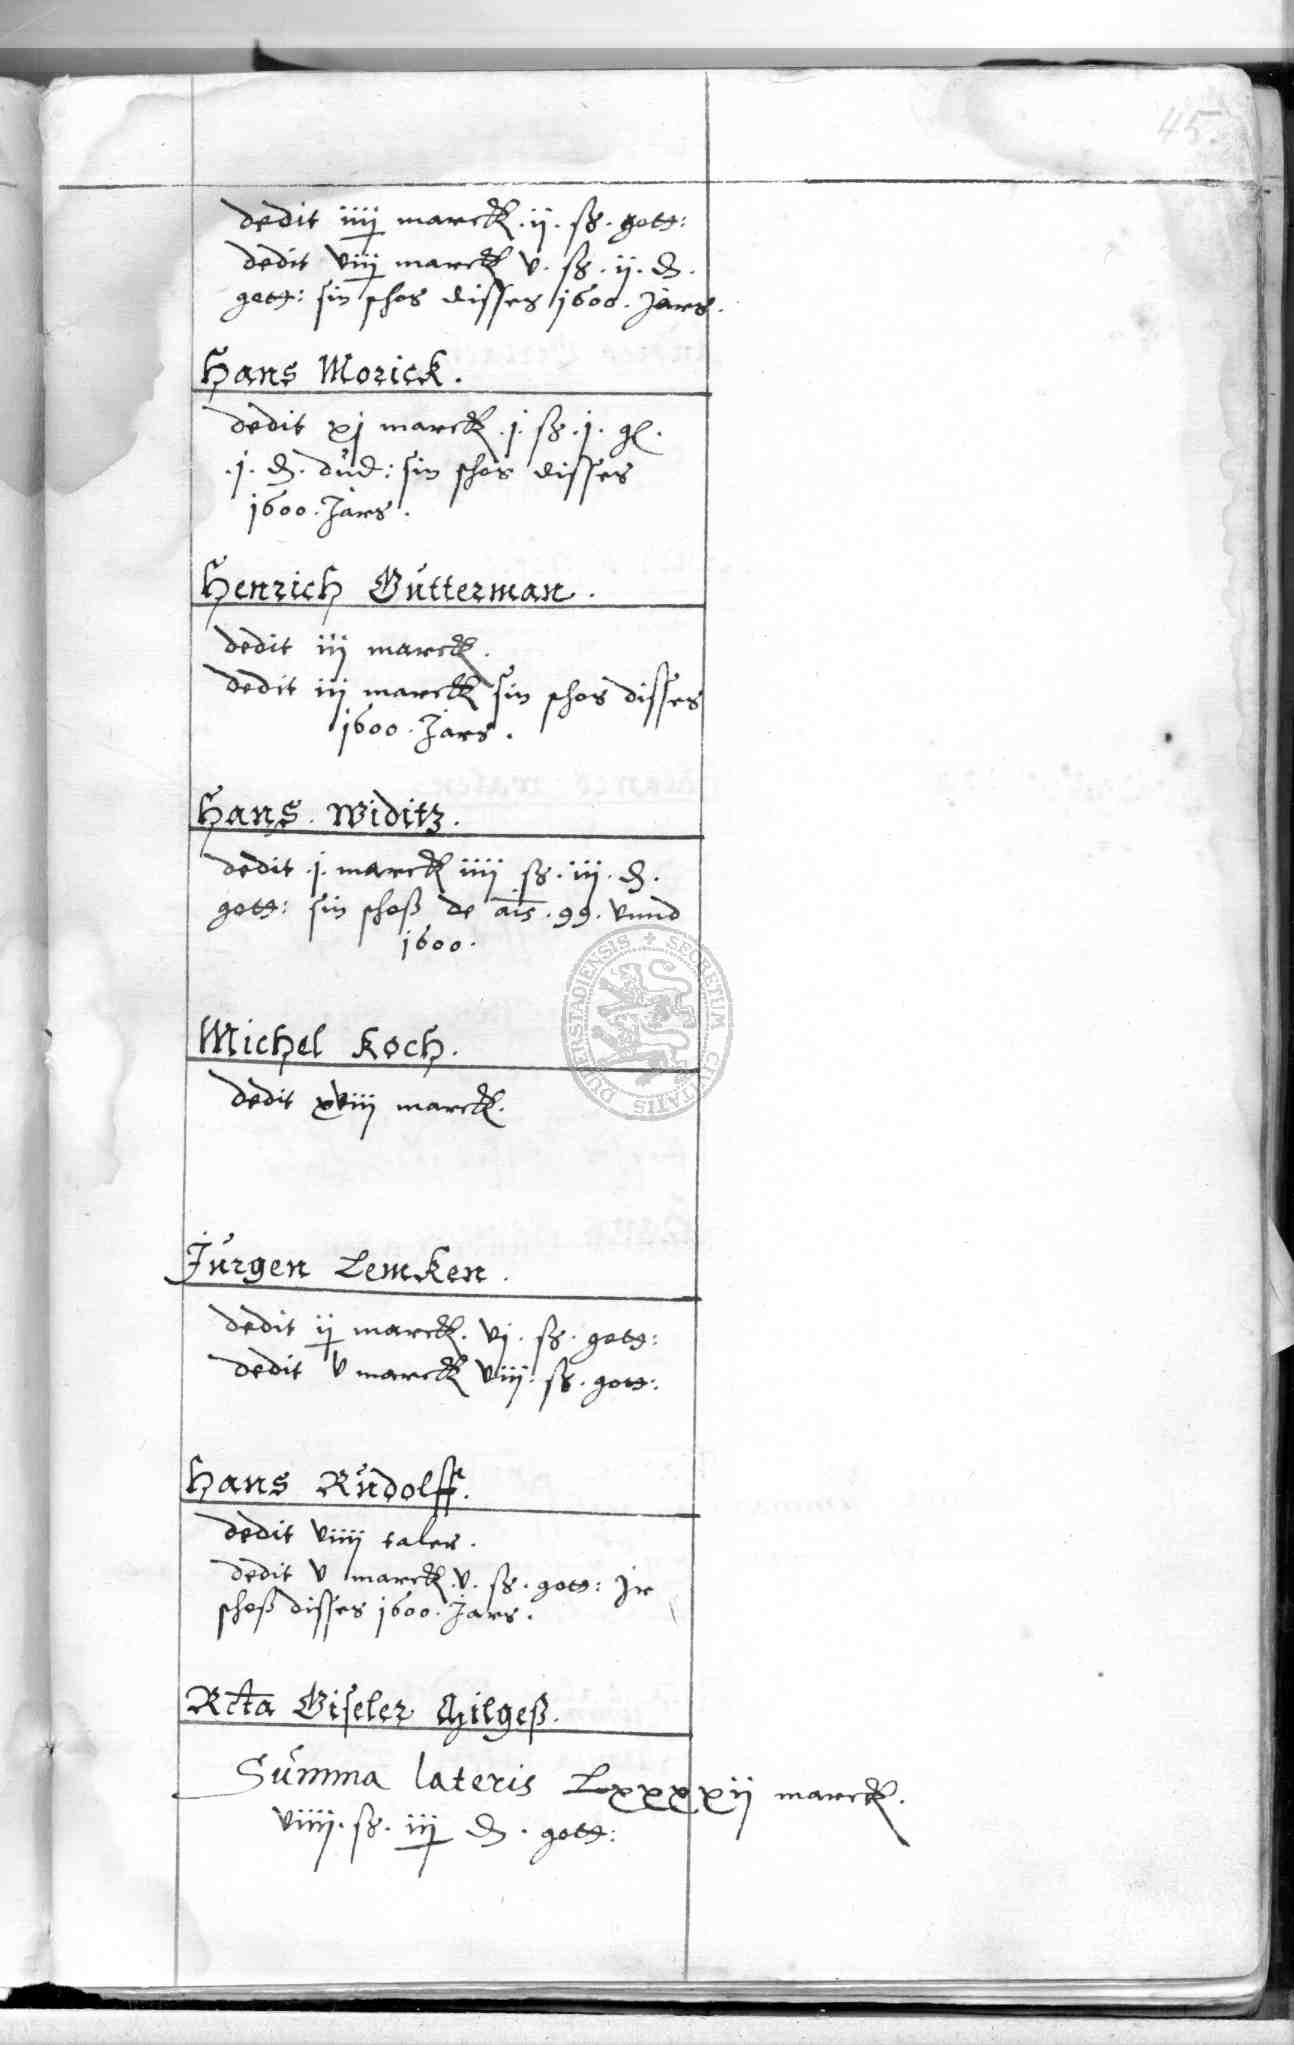 45.
dedit iiij marck .ij. ß. gott:
dedit viij marck v. ß. ij. ₰.
gott: sin schos disses 1600. Jars.
Hans Morick.
dedit xj marck .j. ß. j. gl.
.j. ₰. dud: sin schos disses
1600. Jars.
Henrich Gutterman.
dedit iij marck.
dedit iij marck sin schos disses
1600. Jars.
Hans Widitz.
dedit .j. marck iiij ß. iij. ₰.
gott: sin schoß de ais. 99. vnnd
1600.
SECRETUM CIVITATIS DUDERSTADIENSIS
Michel Koch.
dedit xviij marck.
Jurgen Lemken.
dedit ij marck. vj. ß. gott:
dedit v marck viij. ß. gott:
Hans Rudolff.
dedit viiij taler.
dedit v marck .v. ß. gott: Jr
schoß disses 1600. Jars.
Rcta Giseler Hilgeß.
Summa lateris Lxxxxij marck.
viiij. ß. iij ₰. gott: